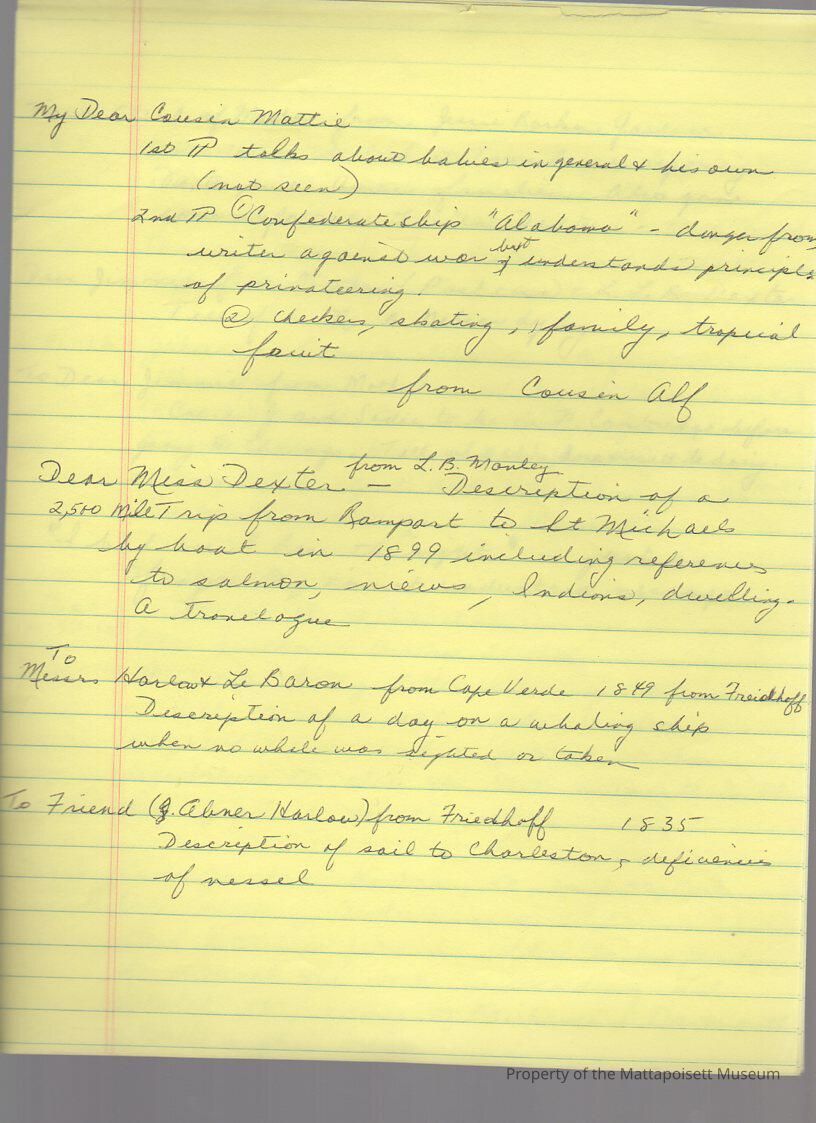 My Dear Cousin Mattie
1st ¶ talks about babies in general & his own
(not seen)
2nd ¶ ① Confederate ship "Alabama" - danger from
writer against war but understands principle
of privateering.
② Checkers, skating, family, tropical
fruit
from Cousin Alf
Dear Miss Dexter from L. B. Manley — Description of a
2,500 mile Trip from Rampart to St Michaels
by boat in 1899 including references
to salmon, views, Indians, dwelling.
A travelogue
To
Messrs Harlow & Le Baron from Cape Verde 1849 from Freidhoff
Description of a day on a whaling ship
when no whale was sighted or taken
To Friend (J. Abner Harlow) from Friedhoff 1835
Description of sail to Charleston, deficiencies
of vessel
Property of the Mattapoisett Museum